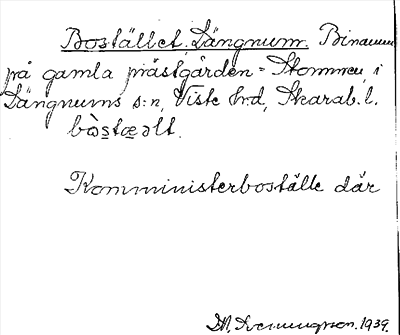 Bostället, Längnum. Binamn
på gamla prästgården = Stommen, i
Längnums s:n, Viste hd, Skarab. l.
bòstæ̱əlt.
Komministerboställe där
1939.